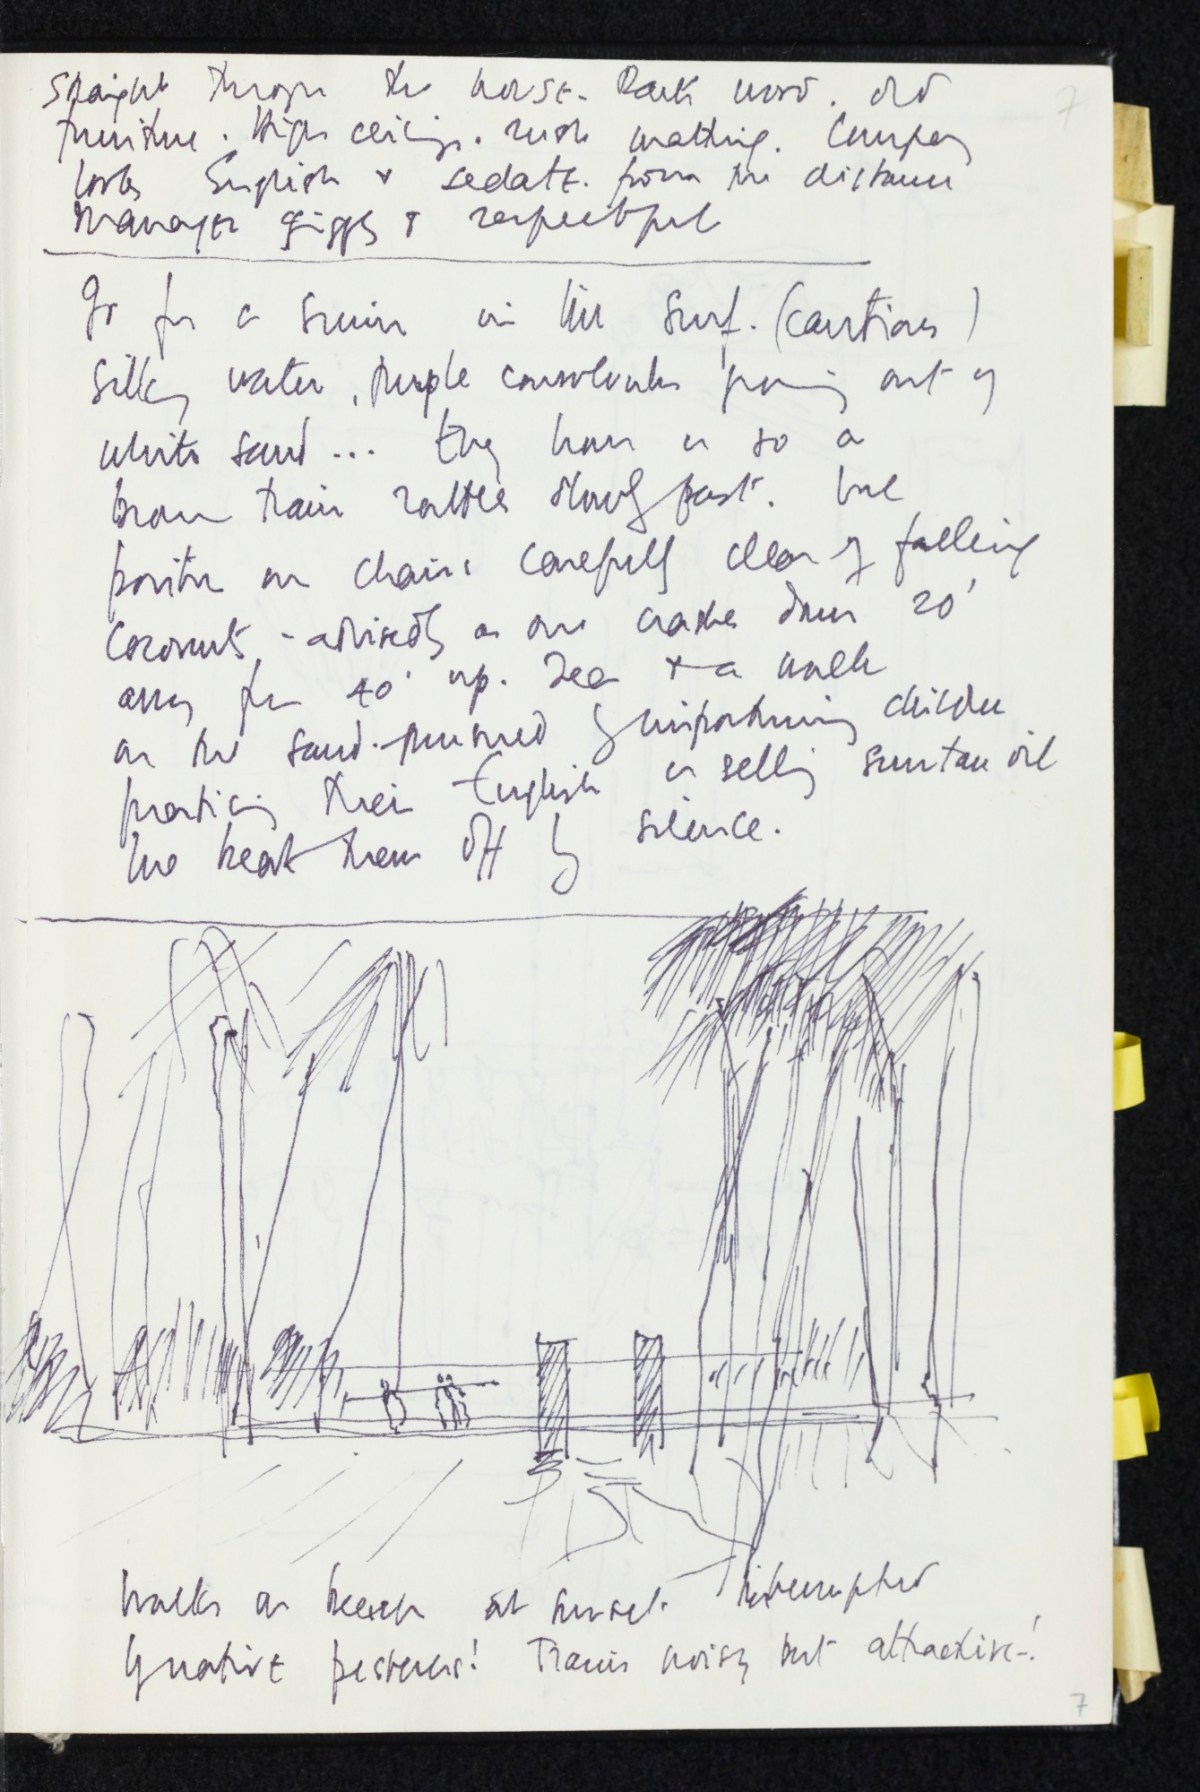 straight through the house. Dark wood. old
furniture. High ceilings. rush matting. Company
looks English & sedate. from the distance
Manager giggly & respectful
7
Go for a swim in the surf. (cautious)
Silky water, purple convolvulus growing out of
white sand... Every hour or so a
brown train rattles slowly past. We
position our chairs carefully clear of falling
coconuts - advisedly as one crashes down 20'
away from 40' up. Tea & a walk
on the sand. pursued by importuning children
practicing their English or selling suntan oil
We beat them off by silence.
Walks on beach at sunset. interrupted
by native pesterers! Trains noisy but attractive-!
7